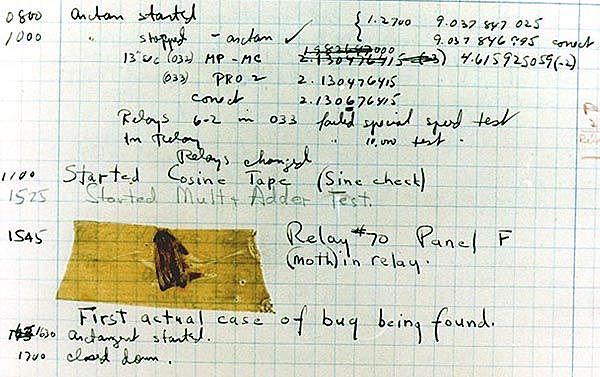 0800 arctan started { 1.2700 9.037 847 025
1000 " stopped - arctan ✓ 9.037 846 995 correct
13"uc (032) MP-MC 1.982647000 2.130476415 (-3) 4.615925059(-2)
(033) PRO 2 2.130476415
correct 2.130676415
Relays 6-2 in 033 failed special speed test
In Relay " 10,000 test.
Relays changed
1100 Started Cosine Tape (Sine check)
1525 Started Mult+Adder Test.
1545 Relay #70 Panel F
(moth) in relay.
First actual case of bug being found.
1630 arctangent started.
1700 closed down.